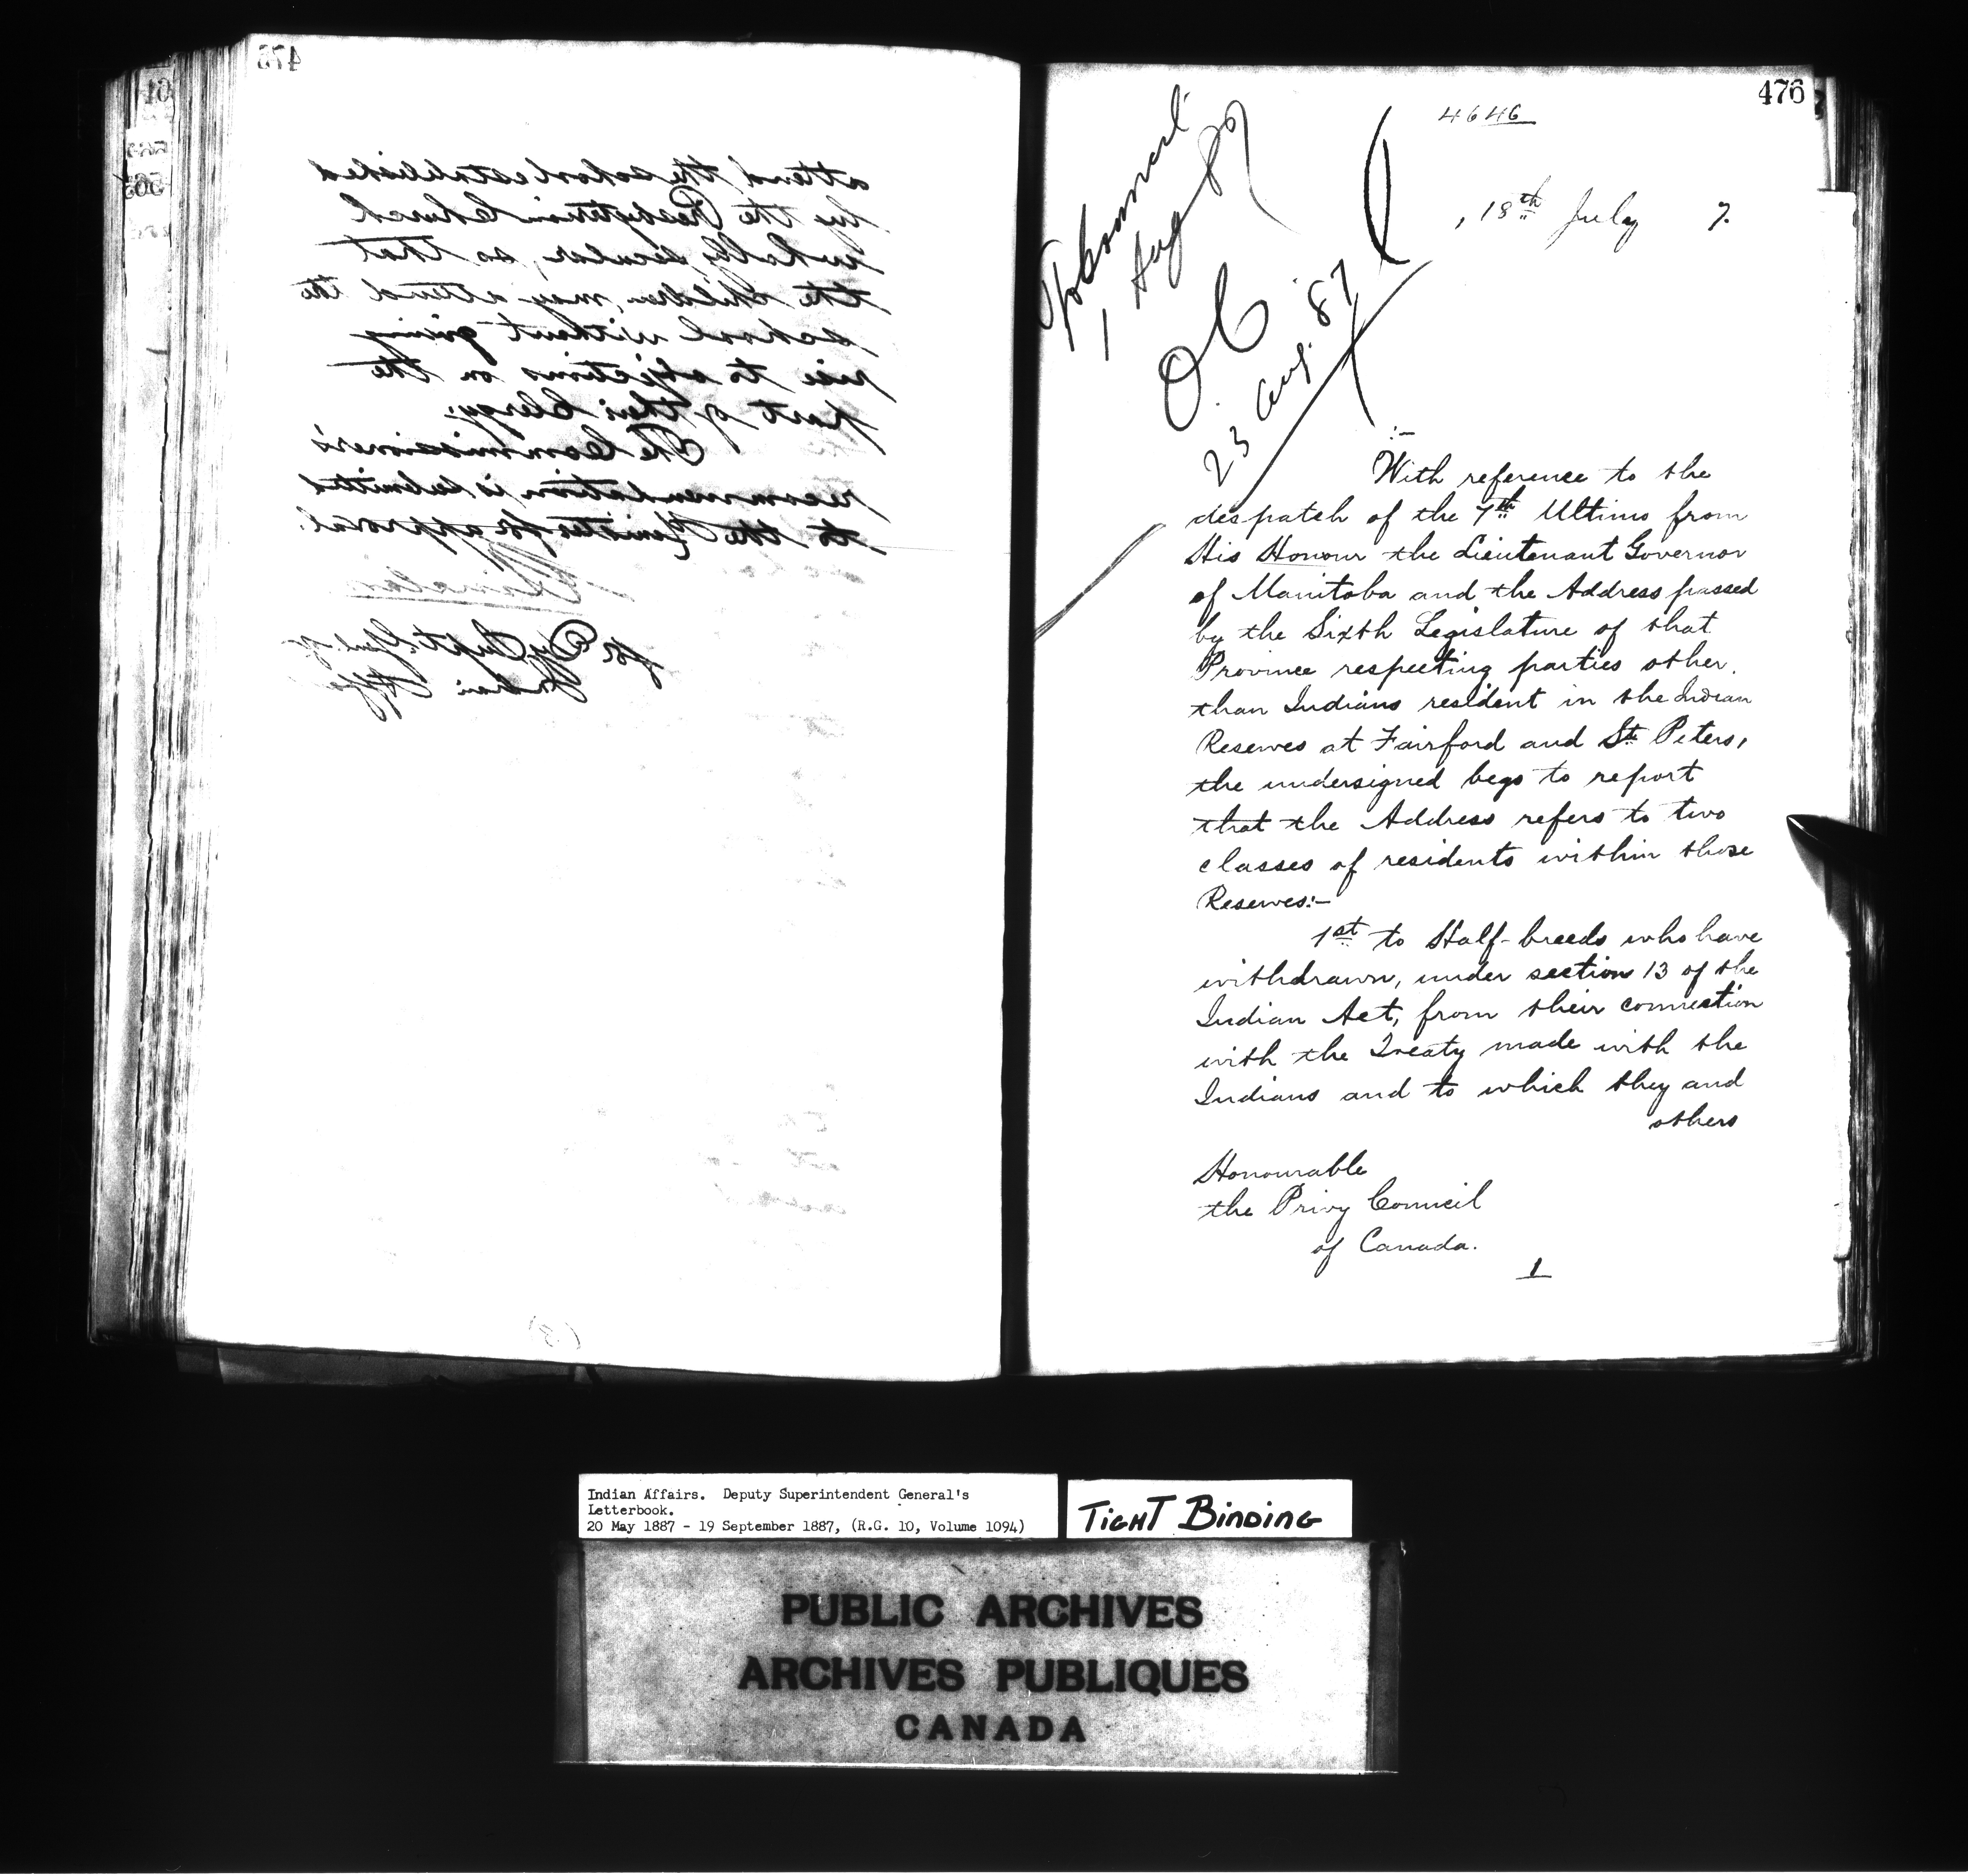 475
attend the school established
by the Presbyterian Church
wholly secular, so that
the children may attend the
school without giving
rise to objections on the
part of their Clergy.
The Commissioner's
recommendation is submitted
to the Minister for approval.
for Dy. Supt. Genl. of
Indian Affs
(3)
476
4646
1 Aug 87
O.C.
23 Aug. 87
, 18th July 7.
:-
With reference to the
despatch of the 7th Ultimo from
His Honour the Lieutenant Governor
of Manitoba and the Address passed
by the Sixth Legislature of that
Province respecting parties other
than Indians resident in the Indian
Reserves at Fairford and St. Peters,
the undersigned begs to report
that the Address refers to two
classes of residents within those
Reserves:-
1st to Half-breeds who have
withdrawn, under section 13 of the
Indian Act, from their connection
with the Treaty made with the
Indians and to which they and
others
Honourable
the Privy Council
of Canada.
1
Indian Affairs. Deputy Superintendent General's
Letterbook.
20 May 1887 - 19 September 1887, (R.G. 10, Volume 1094)
TIGHT BINDING
PUBLIC ARCHIVES
ARCHIVES PUBLIQUES
CANADA